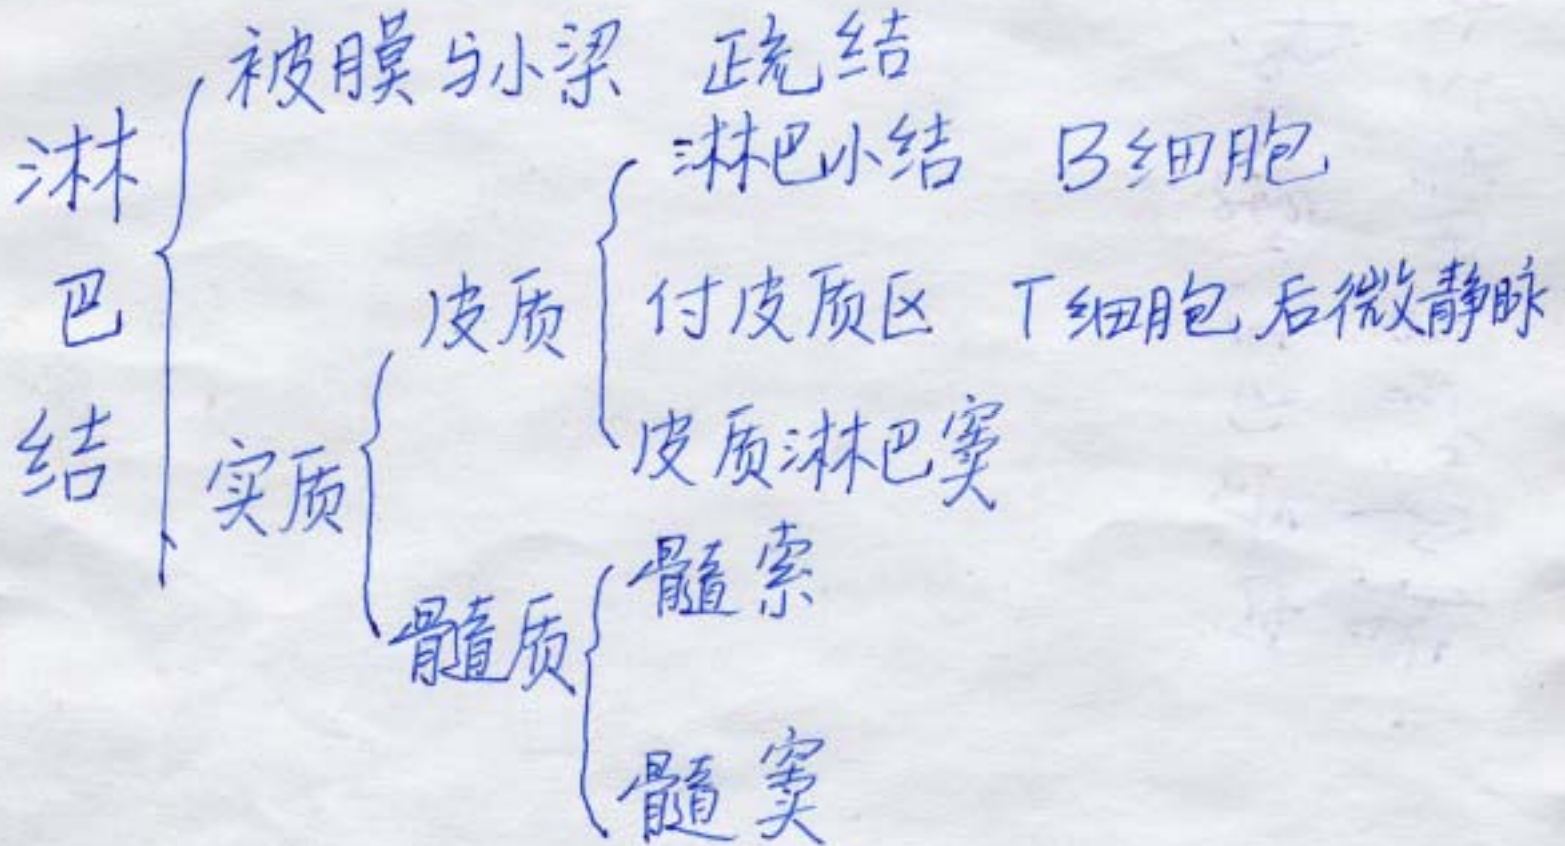 淋巴结
被膜与小梁 疏结
实质
皮质
淋巴小结 B细胞
付皮质区 T细胞 后微静脉
皮质淋巴窦
髓质
髓索
髓窦